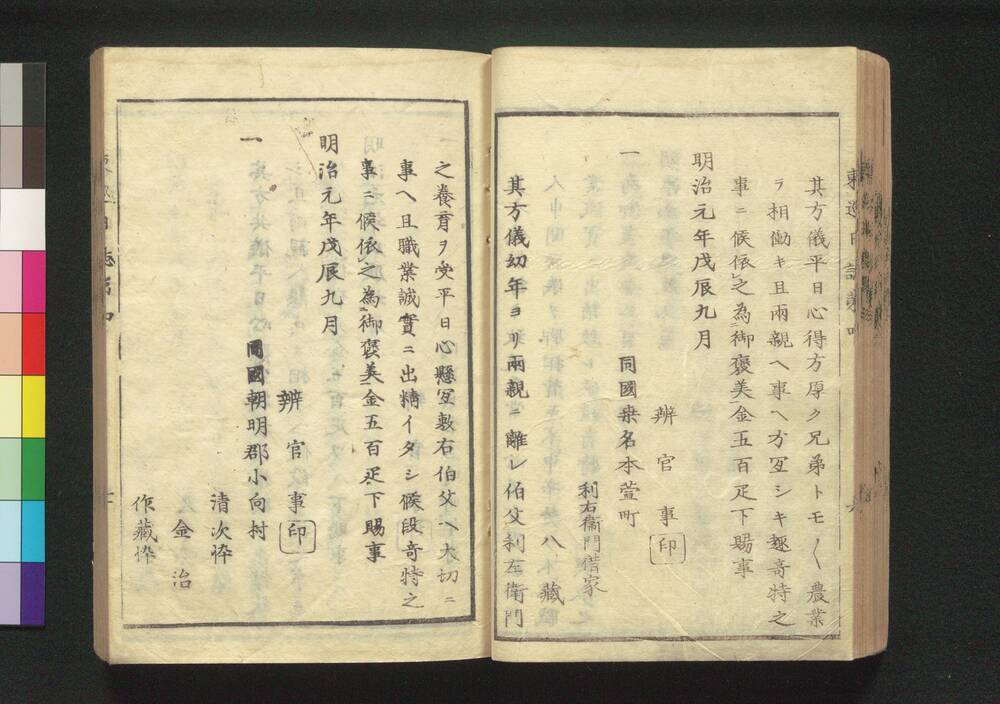 其方儀平日心得方厚ク兄弟トモ〱農業
ヲ相働キ且兩親ヘ事ヘ方宜シキ趣奇特之
事ニ候依之為御褒美金五百疋下賜事
明治元年戊辰九月
辨官事印
一
同國桒名本萱町
利右衞門借家
八藏
其方儀幼年ヨリ兩親ニ離レ伯父利左衛門
之養育ヲ受平日心懸宜敷右伯父ヘ大切ニ
事ヘ且職業誠實ニ出精イタシ候段奇特之
事ニ候依之為御褒美金五百疋下賜事
明治元年戊辰九月
辨官事印
一
同國朝明郡小向村
清次忰
金治
作藏忰